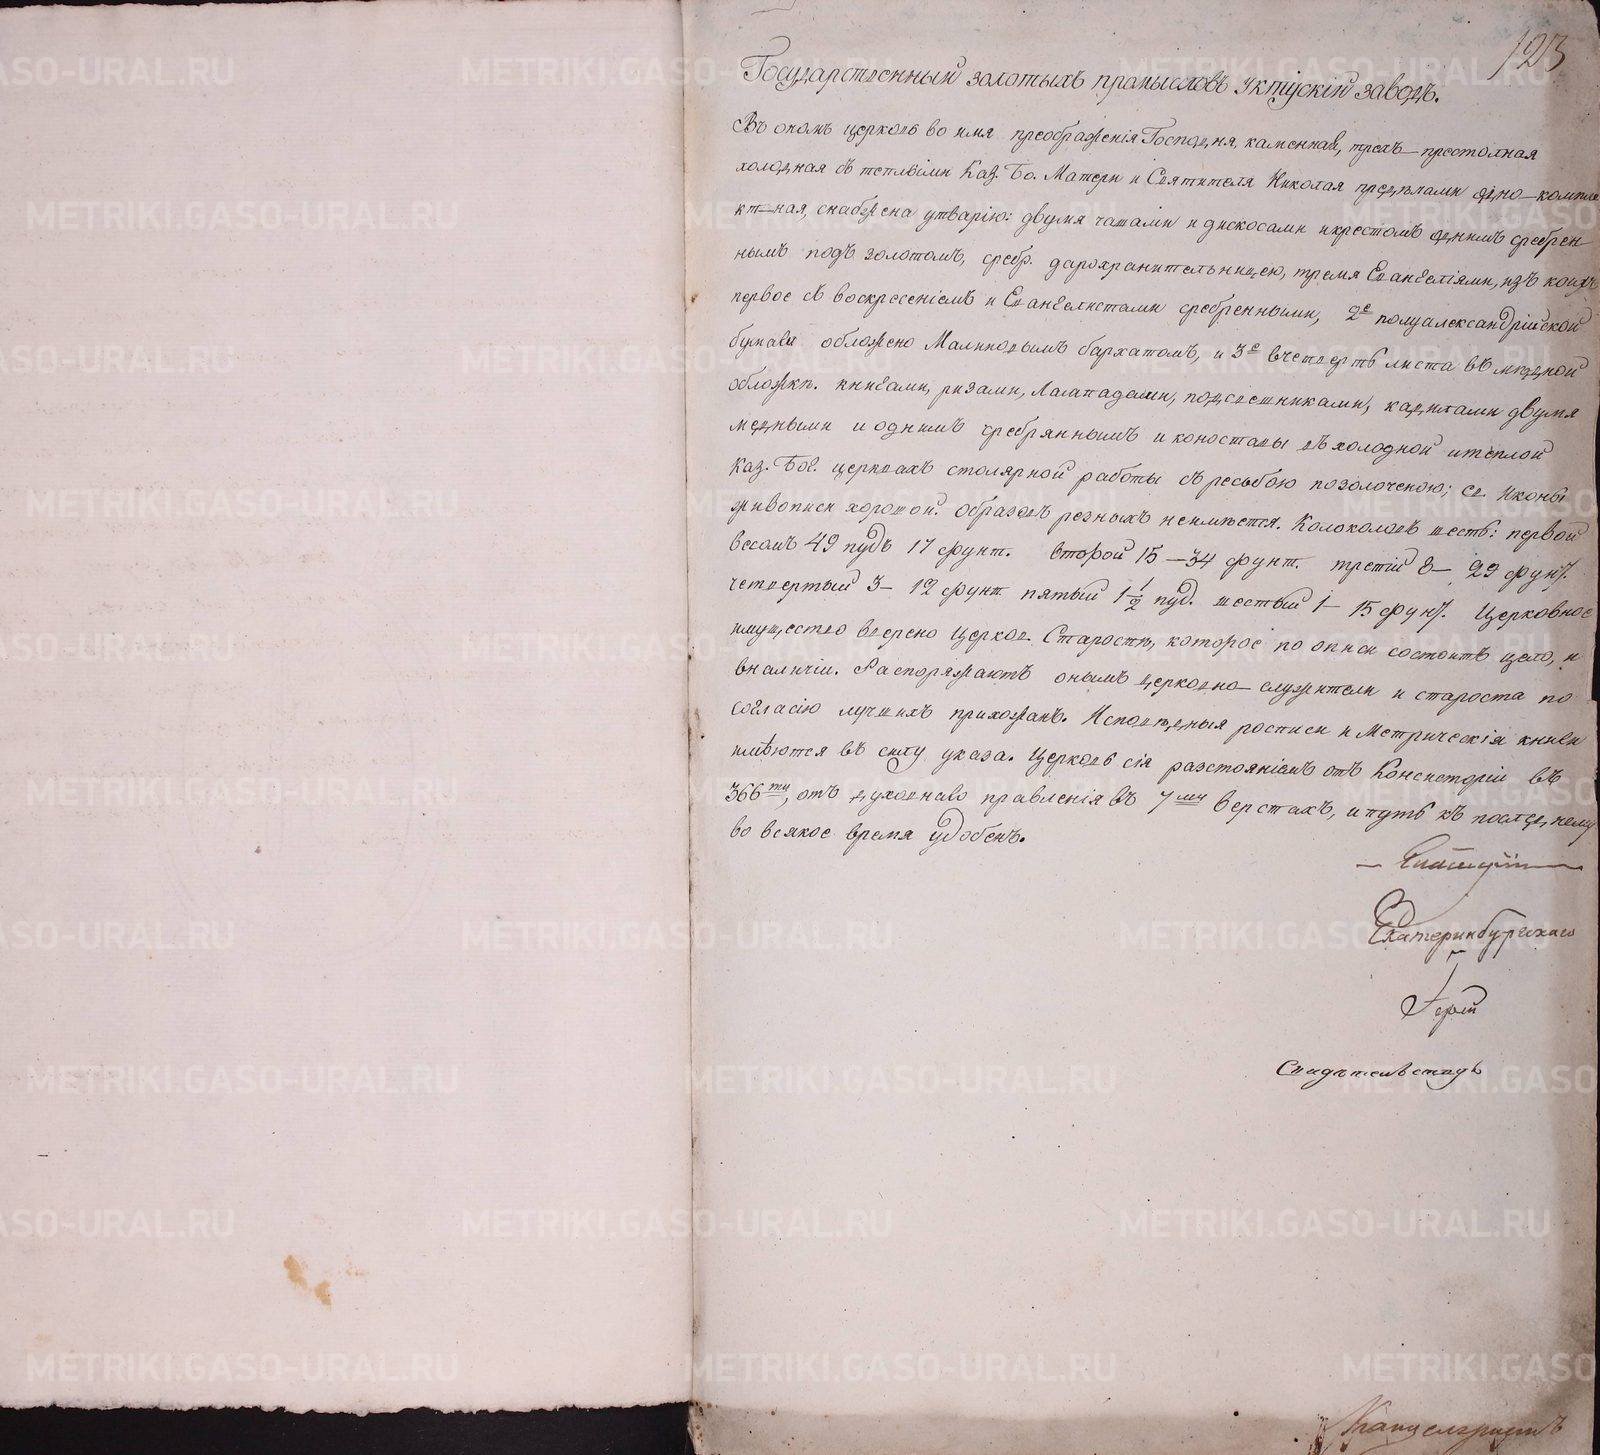 123
Государственный золотыхъ промысловъ Уктускій заводъ.
Въ ономъ церковь во имя преображенія Господня, каменная, трехъ-престольная
холодная съ теплыми Каз. Бо. Матери и Святителя Николая предѣлами одно-компле
ктная, снабжена утварію: двумя чашами и дискосами и крестомъ однимъ сребрен
нымъ подъ золотомъ, сребр. дарохранительницею, тремя Евангеліями, изъ коихъ
первое съ воскресеніемъ и Евангелистами сребренными, 2е полуалександрійской
бумаги обложено Малиновымъ бархатомъ, и 3е въ четверть листа въ мѣдной
обложкѣ. книгами, ризами, Лампадами, подсвешниками, кадилами двумя
медными и однимъ сребряннымъ и коностасы въ холодной и теплой
Каз. Бог. церквахъ столярной работы съ resьбою позолоченою; Св. Иконы
живописи хорошой. образовъ резныхъ неимѣется. Колоколовъ шесть: первой
весомъ 49 пудъ 17 фунт. второй 15-34 фунт. третій 8- 29 фунт.
четвертый 3- 12 фунт пятый 1 1/2 пуд. шестый 1- 15 фунт. Церковное
имущество вверено Церков. Старостѣ, которое по описи состоитъ цело, и
въ наличіи. Распоряжаютъ онымъ церковно-служители и староста по
согласію лучшихъ прихожанъ. Исповѣдныя росписи и Метрическія книги
имѣются въ силу указа. Церковь сія разстояніемъ отъ Консисторіи въ
366ти, отъ духовнаго правленія въ 7ми верстахъ, и путь къ последнему
во всякое время удобенъ.
Екатеринбургскаго
Свидѣтельствъ
Канцеляристъ
METRIKI.GASO-URAL.RU